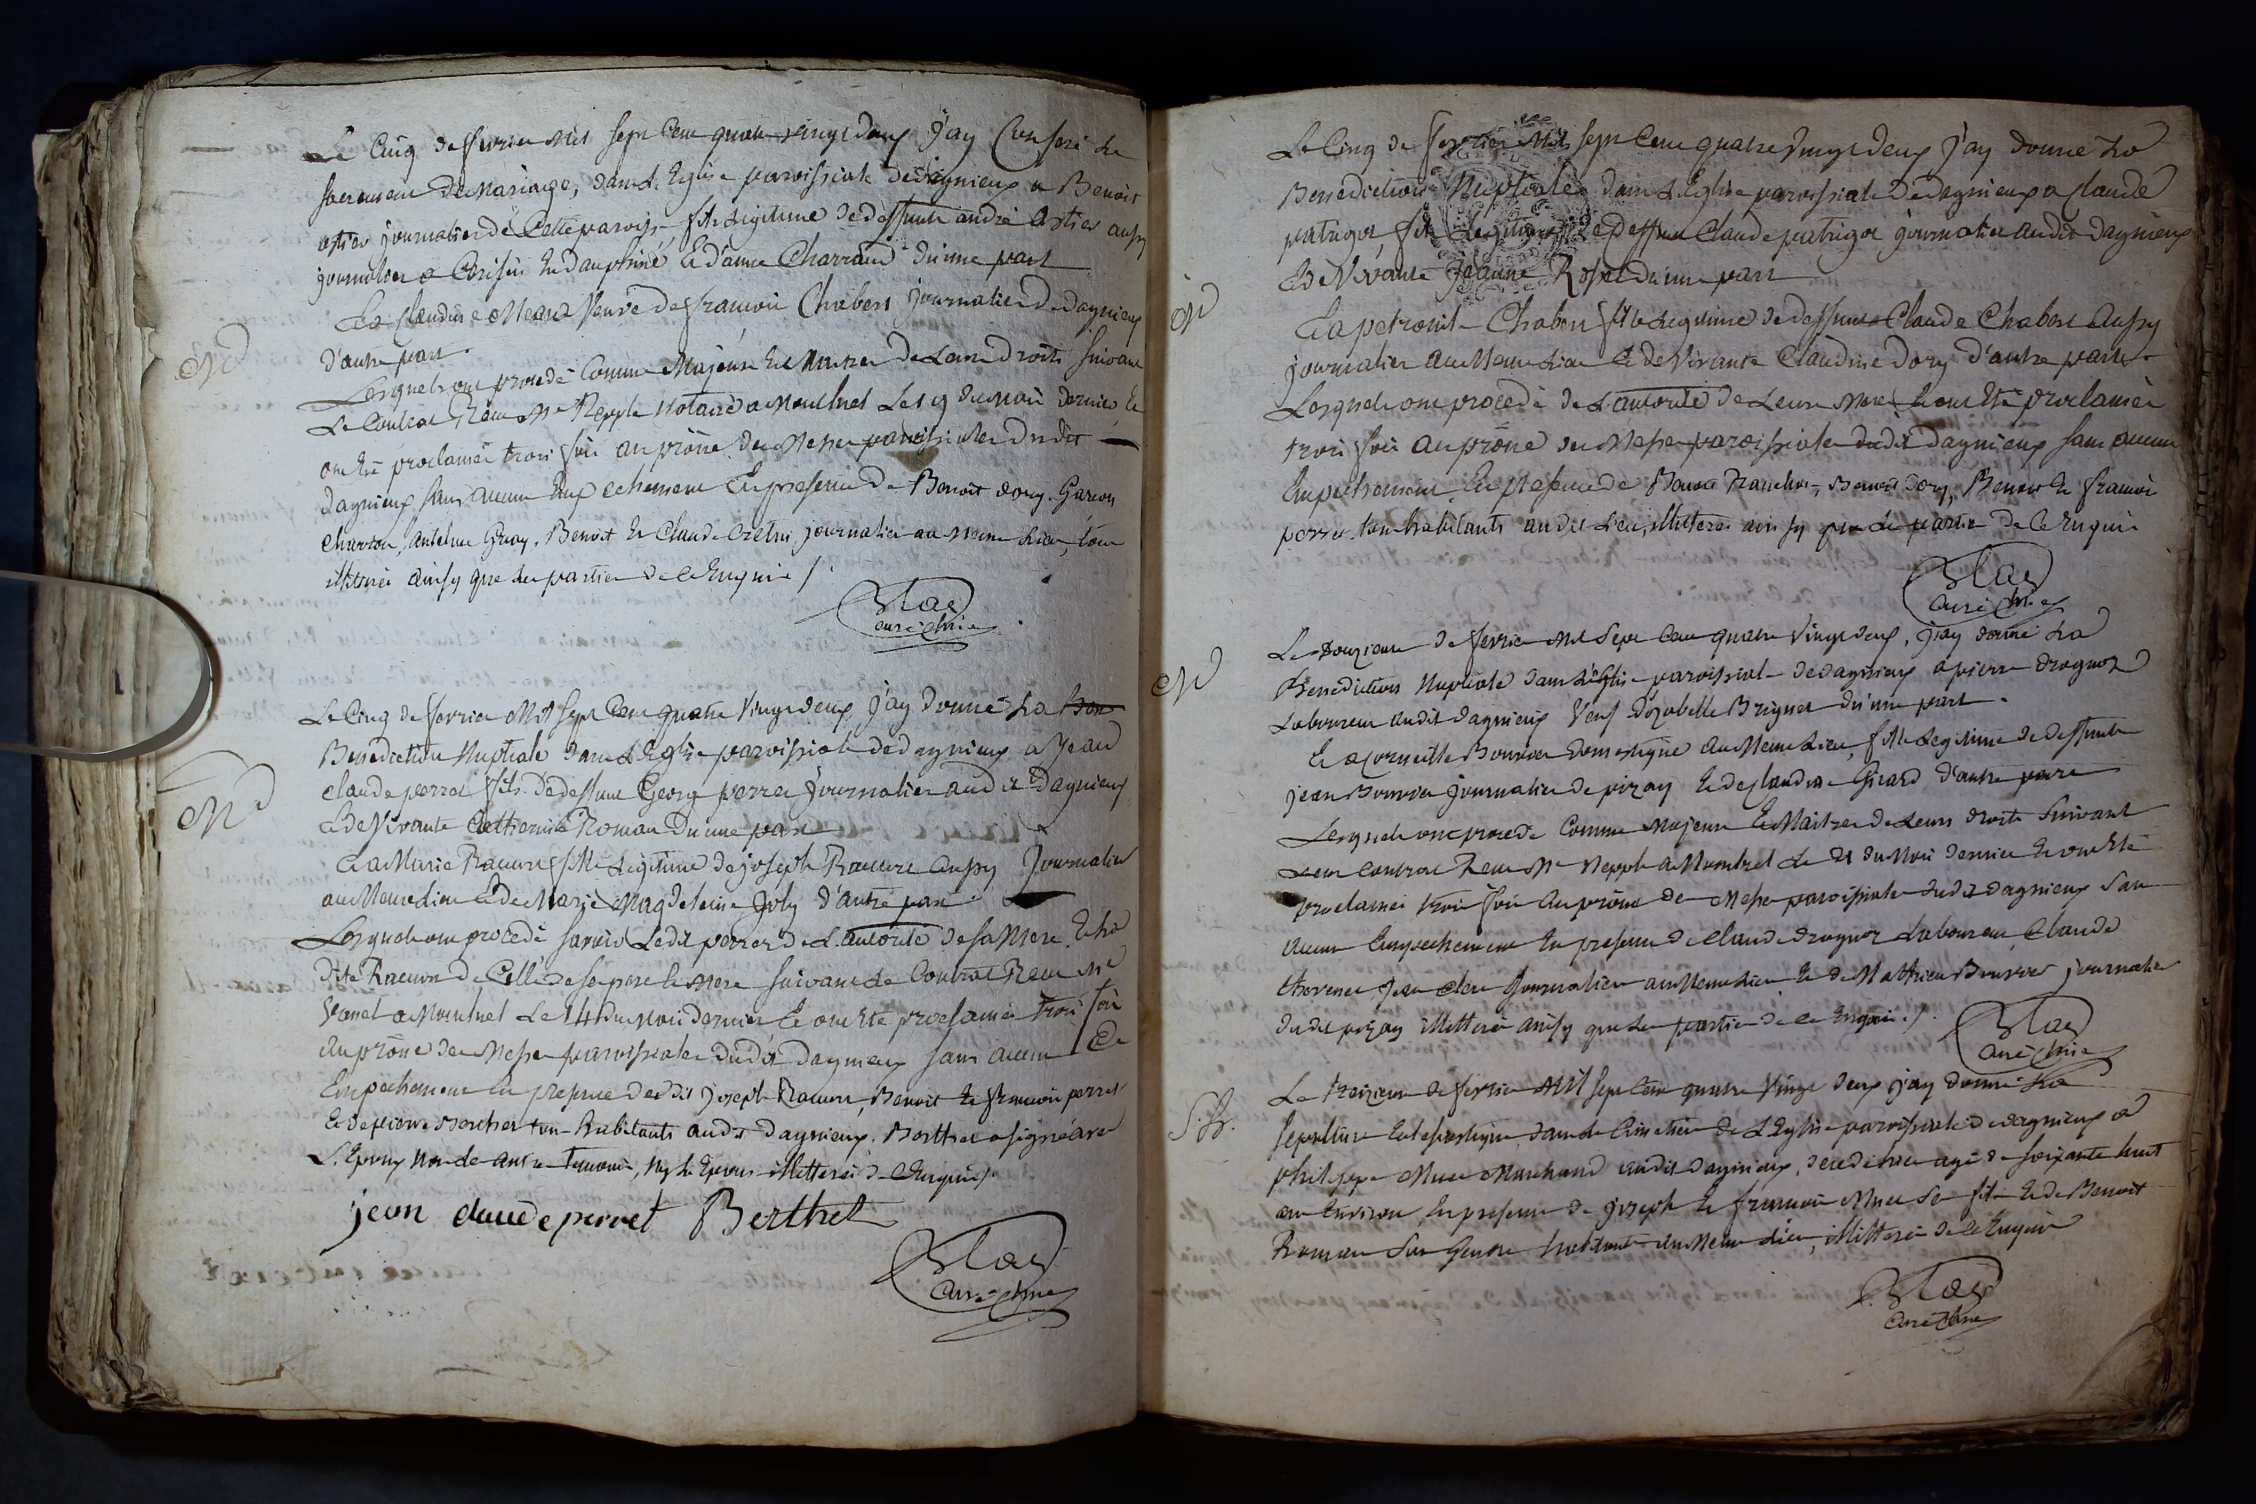 Le Cinq de fevrier Mil sept Cent quatre vingt deux j'ay Conferé Le
Sacrement de Mariage, dans L'Eglise paroissiale de dagnieux a Benoit
astier journalier de Cette paroisse fils Legitime de deffunts andré Astier aussy
journalier a en dauphiné et d'anne Charraud d'une part
Et a Claudine Meant Veuve de francois Chabert journalier de dagnieux
d'autre part.
M
Lesquels ont procedé Comme Majeurs et Maitres de Leurs Droits suivant
Le Contrat Recu Me Nepple Notaire a Montluel Le 19 du Mois dernier et
ont été proclamés trois fois au prône des Messes paroissiales dudit
dagnieux sans aucun Empechement En presence de Benoit dory Garcon
charron, antelme Gray, Benoit et Claude journalier au meme Lieu, tous
illitterés ainsy que Les parties de ce Enquis /.
Blas
curé
Le Cinq de fevrier Mil sept Cent quatre Vingt deux j'ay donné La Ben
Benediction Nuptiale dans L'Eglise paroissiale de dagnieux a Jean
claude perret fils de deffunt George perret journalier audit Dagnieux
M
et de Vivante Catherine Roman d'une part
Et a Marie Racurt fille Legitime de joseph Racurt aussy Journalier
au Meme Lieu et de Marie Magdeleine Joly d'autre part
Lesquels ont procedé savoir Ledit perret de L'autorité de sa Mere Et La
dite Racurt de Celle de ses pere et mere suivant Le Contrat Recu Me
Vionet a Montluel Le 14 du Mois dernier Et ont été proclamés trois fois
au prône des Messes paroissiales dudit dagnieux sans aucun
Empechement En presence dudit joseph Racurt, Benoit et francois perret
Et de pierre Berthet tous habitants audit dagnieux. Berthet a signé avec
L'Epoux Non Les autres temoins, Ny L'Epouse illitterés de ce Enquis /.
jean claude perret Berthet
Blas
curé
Le Cinq de fevrier Mil sept Cent quatre vingt deux j'ay donné La
Benediction Nuptiale dans L'Eglise paroissiale de dagnieux a Claude
putrigot, fils Legitime de deffunt Claude putrigot journalier audit dagnieux
et de Vivante Jeanne Roset d'une part
M
Et a petronille Chabert fille Legitime de deffunt Claude Chabert aussy
journalier au Meme Lieu et de Vivante Claudine dory d'autre part
Lesquels ont procedé de L'autorité de Leurs Meres et ont été proclamés
trois fois au prône des Messes paroissiales dudit dagnieux sans aucun
Empechement, En presence de Benoit, Benoit dory, Benoit et francois
perret tous habitants audit Lieu, illitterés ainsy que Les parties de ce Enquis
Blas
curé
Le Douzieme de fevrier Mil sept Cent quatre Vingt deux, j'ay donné La
M
Benediction Nuptiale dans L'Eglise paroissiale de dagnieux a pierre drognot
Laboureur audit dagnieux Veuf d'izabelle Brignet d'une part.
Et a Corneille Bouvier domestique au Meme Lieu, fille Legitime de deffunts
jean Bouvier journalier de pizay et de Claudine Girard d'autre part
Lesquels ont procedé Comme Majeurs Et Maitres de Leurs droits Suivant
Leur Contrat Recu Me Nepple a Montluel Le 21 du Mois dernier et ont été
proclamés trois fois au prône des Messes paroissiales dudit dagnieux Sans
Aucun Empechement En presence de Claude drognot Laboureur, Claude
thevenet, Jean journalier au Meme Lieu et de Mathieu Bouvier journalier
dudit pizay illitterés ainsy que Les parties de ce Enquis /.
Blas
curé
Le treizieme de fevrier Mil sept Cent quatre Vingt deux j'ay donné La
S.re
sepulture Ecclesiastique dans Le Cimetiere de L'Eglise paroissiale de dagnieux a
philippe Marchand audit dagnieux, decedé hier agé de soixante huit
ans Environ, En presence de joseph et francois Ses fils et de Benoit
Roman Son Gendre habitants au Meme Lieu, illitterés de ce Enquis
Blas
curé